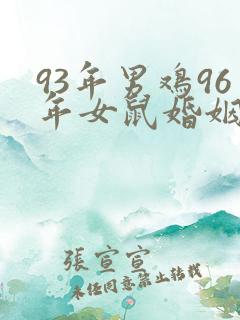 93年男鸡96
年女鼠婚姻
張宣宣
未经同意禁止转载